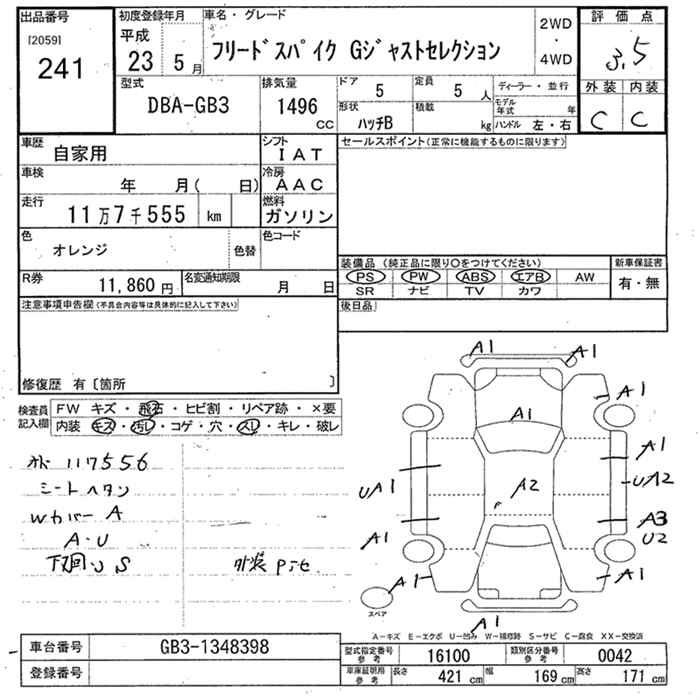 出品番号
[2059]
241
初度登録年月
平成
23 5 月
車名・グレード
フリードスパイク Gジャストセレクション
2WD
・
4WD
評価点
3.5
外装 内装
C C
型式
DBA-GB3
排気量
1496
CC
ドア 5
定員 5 人
形状 ハッチB
積載 kg
ディーラー・並行
モデル年式 年
ハンドル 左・右
車歴 自家用
シフト IAT
セールスポイント(正常に機能するものに限ります)
車検 年 月( 日)
冷房 AAC
走行 11万7千555 km
燃料 ガソリン
色 オレンジ 色替
色コード
装備品(純正品に限り○をつけてください)
新車保証書
有・無
PS PW ABS エアB AW
SR ナビ TV カワ
R券 11,860円
名変通知期限 月 日
後日品
注意事項申告欄(不具合内容等は具体的に記入して下さい)
修復歴 有〔箇所 〕
検査員記入欄
FW キズ・飛石・ヒビ割・リペア跡・×要
内装 キズ・汚レ・コゲ・穴・スレ・キレ・破レ
117556
シートヘタリ
Wカバー A
A・U
下廻りS
A1
A1
A1
A1
A1
UA1
A2
UA2
A3
U2
A1
A1
A1
スペア
A1
A-キズ E-エクボ U-凹み W-補修跡 S-サビ C-腐食 XX-交換済
車台番号 GB3-1348398
登録番号
型式指定番号参考 16100
類別区分番号参考 0042
車庫証明用参考 長さ 421 cm 幅 169 cm 高さ 171 cm